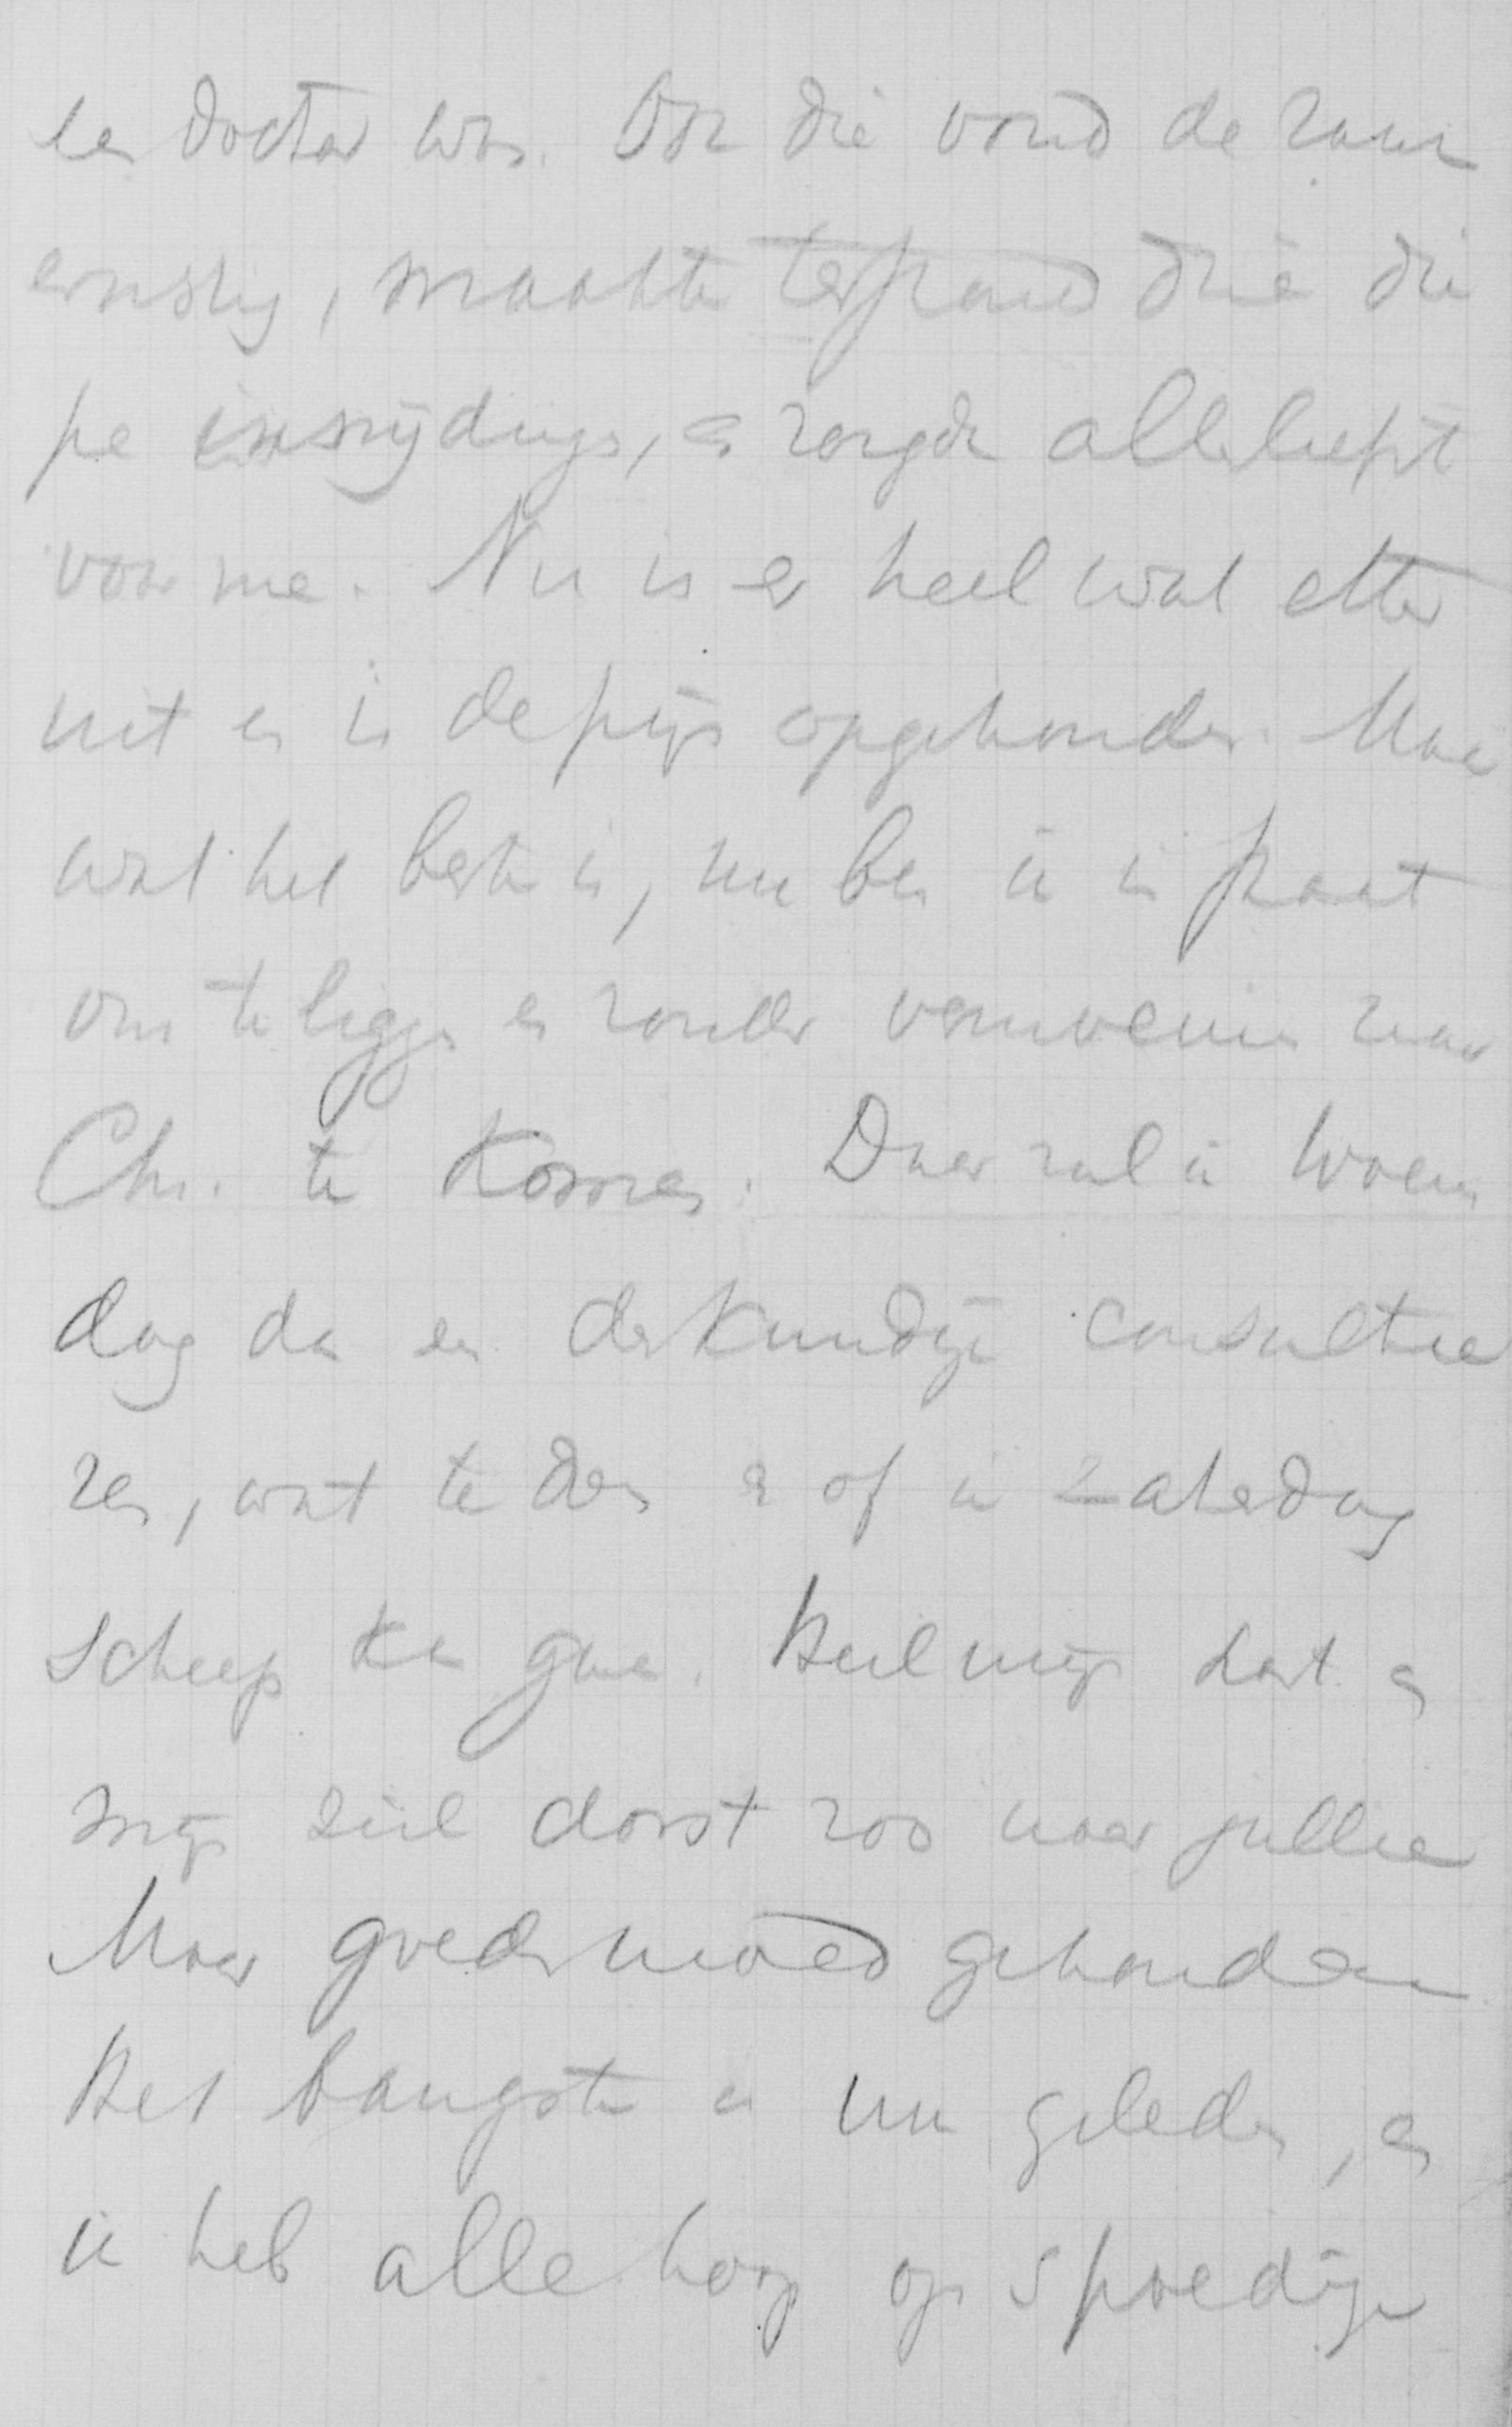 een doctor was. Ook die vond de zaak
ernstig, maakte terstond drie die
pe insnijdingen, en zorgde allerliefst
voor me. Nu is er heel wat etter
uit en is de pijn opgehouden. Maar
wat het beste is, nu ben ik in staat
om te liggen en zonder vermoeienis naar
Chr. te komen. Daar zal ik Woens
dag dan een deskundige consultee
ren, wat te doen en of ik Zaterdag
scheep kan gaan. Heel mijn hart en
mijn ziel dorst zoo naar jullie
Maar goeden moed gehouden
Het bangste is nu geleden, en
ik heb alle hoop op spoedige